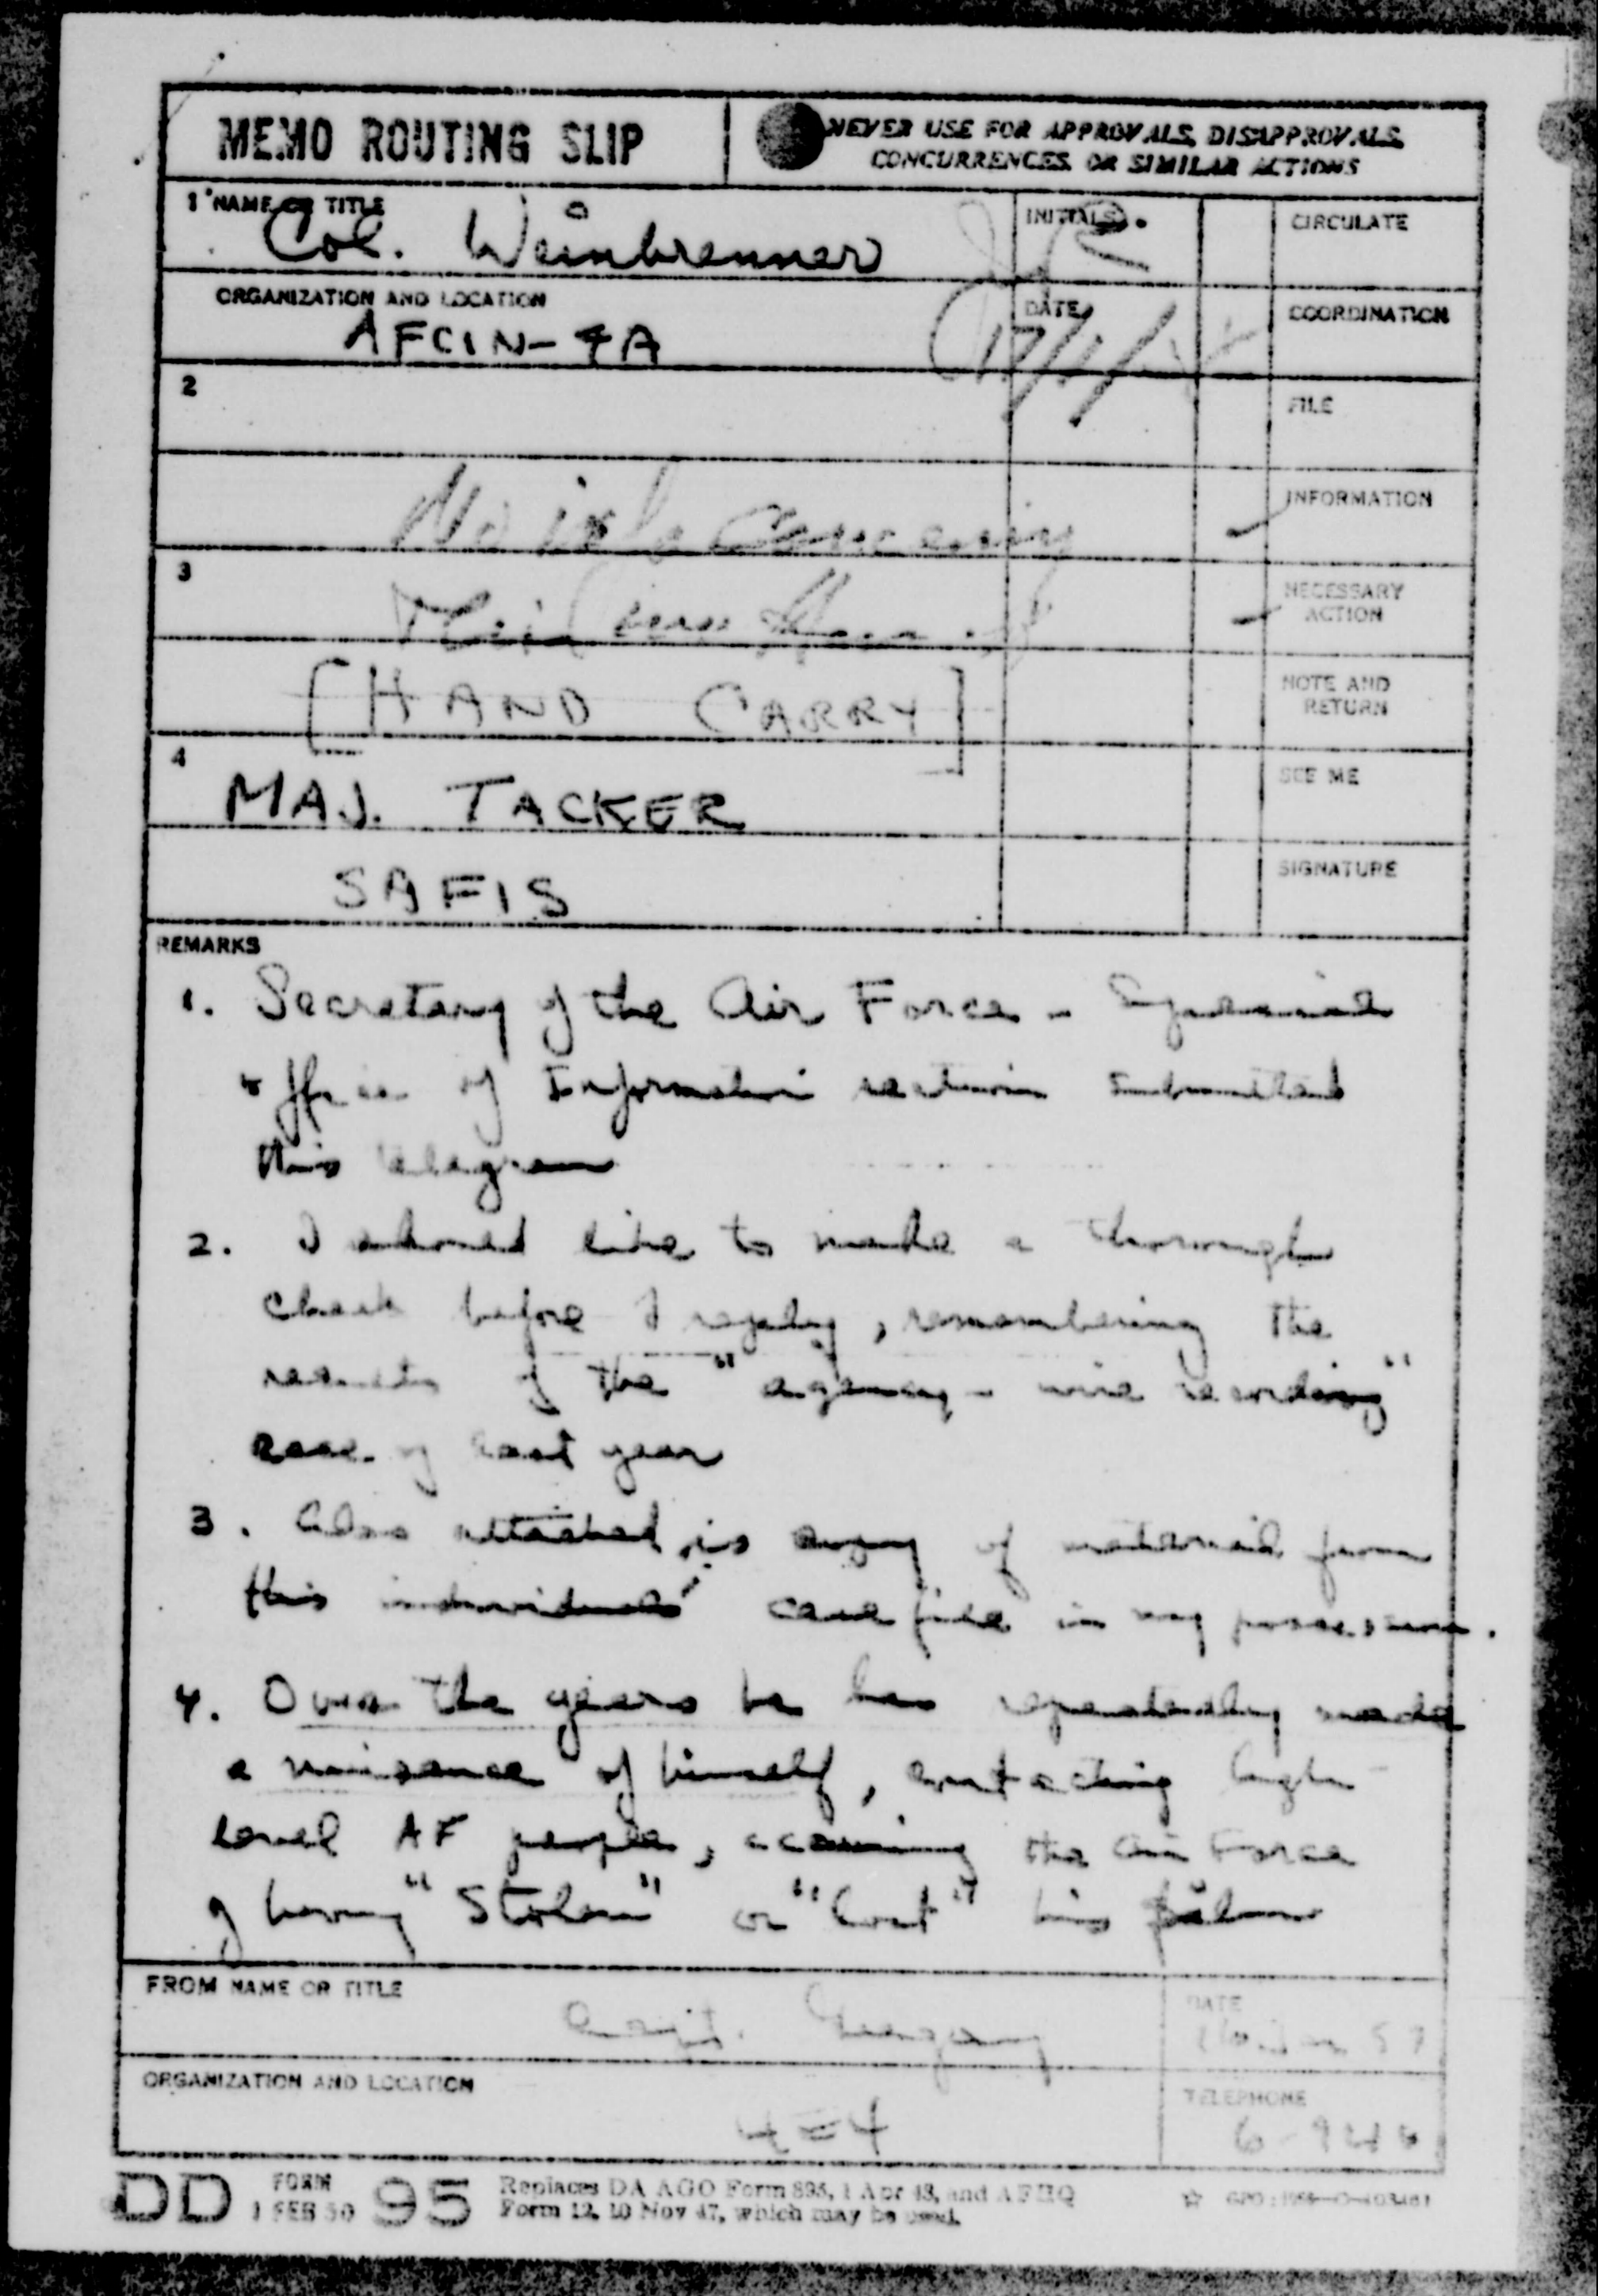 MEMO ROUTING SLIP
NEVER USE FOR APPROVALS, DISAPPROVALS,
CONCURRENCES, OR SIMILAR ACTIONS
1 NAME OR TITLE
Col. Weinbrenner
INITIALS
CIRCULATE
ORGANIZATION AND LOCATION
AFCIN-4A
DATE
COORDINATION
2
FILE
No info concerning
INFORMATION
3
NECESSARY
ACTION
[HAND CARRY]
NOTE AND
RETURN
4
MAJ. TACKER
SEE ME
SAFIS
SIGNATURE
REMARKS
1. Secretary of the Air Force -
Office of Information submitted
this telegram
2. I would like to make a thorough
check before I reply, remembering the
results of the "agency - wire recording"
case of last year
3. Also attached is copy of material from
this individuals' case file in my possession.
4. Over the years he has repeatedly made
a nuisance of himself, contacting high
level AF people, accusing the Air Force
of having "Stolen" or "lost" his films
FROM NAME OR TITLE
Capt. Gregory
DATE
Jan 57
ORGANIZATION AND LOCATION
TELEPHONE
DD FORM 1 FEB 50 95
Replaces DA AGO Form 895, 1 Apr 48, and AFHQ
Form 12, 10 Nov 47, which may be used.